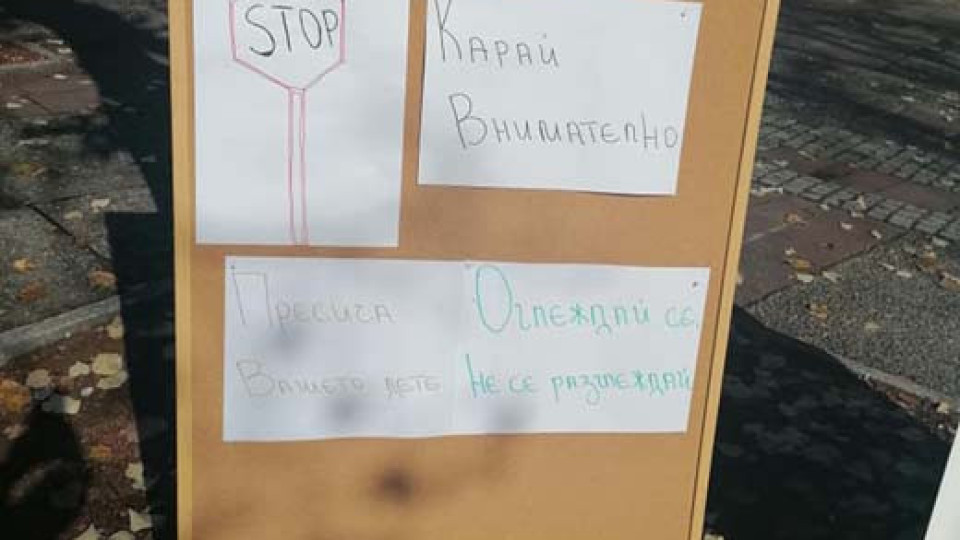 STOP
Карай
Внимателно
Пресича
Вашето дете
Оглеждай се,
Не се разглеждай